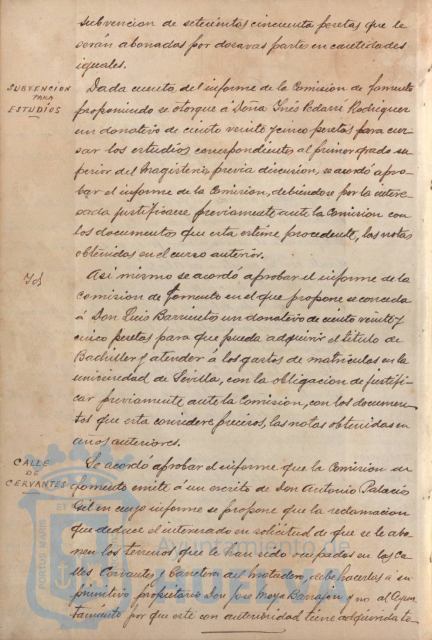 subvencion de setecientas cincuenta pesetas que le
serán abonadas por dozavas parte en cantidades
iguales.
SUBVENCION
PARA
ESTUDIOS
Dada cuenta del informe de la Comision de fomento
proponiendo se otorgue á Doña Inés Rodriguez
un donativo de ciento veinte y cinco pesetas para cur-
sar los estudios correspondientes al primer grado su-
perior del Magisterio, previa discusion, se acordó apro-
bar el informe de la Comision, debiendose por la intere-
sada justificarse previamente ante la Comision con
los documentos que esta estime procedente, las notas
obtenidas en el curso anterior.
Id
Asi mismo se acordó aprobar el informe de la
Comision de fomento en el que propone se conceda
á Don Luis Barrueto un donativo de ciento veinte y
cinco pesetas para que pueda adquirir el titulo de
Bachiller y atender á los gastos de matriculas en la
universidad de Sevilla, con la obligacion de justifi-
car previamente ante la Comision, con los documen-
tos que esta considere precisos, las notas obtenidas en
años anteriores.
CALLE
DE
CERVANTES
Se acordó aprobar el informe que la Comision de
fomento emite á un escrito de Don Antonio Palacios
Gil en cuyo informe se propone que la reclamacion
que deduce el interesado en solicitud de que se le abo-
nen los terrenos que le han sido ocupados en las Ca-
lles Cervantes y Carretera del matadero, debe hacerlas á su
primitivo propietario Don Jose Moya y no al Ayun-
tamiento por que este con anterioridad tiene adquirido te-